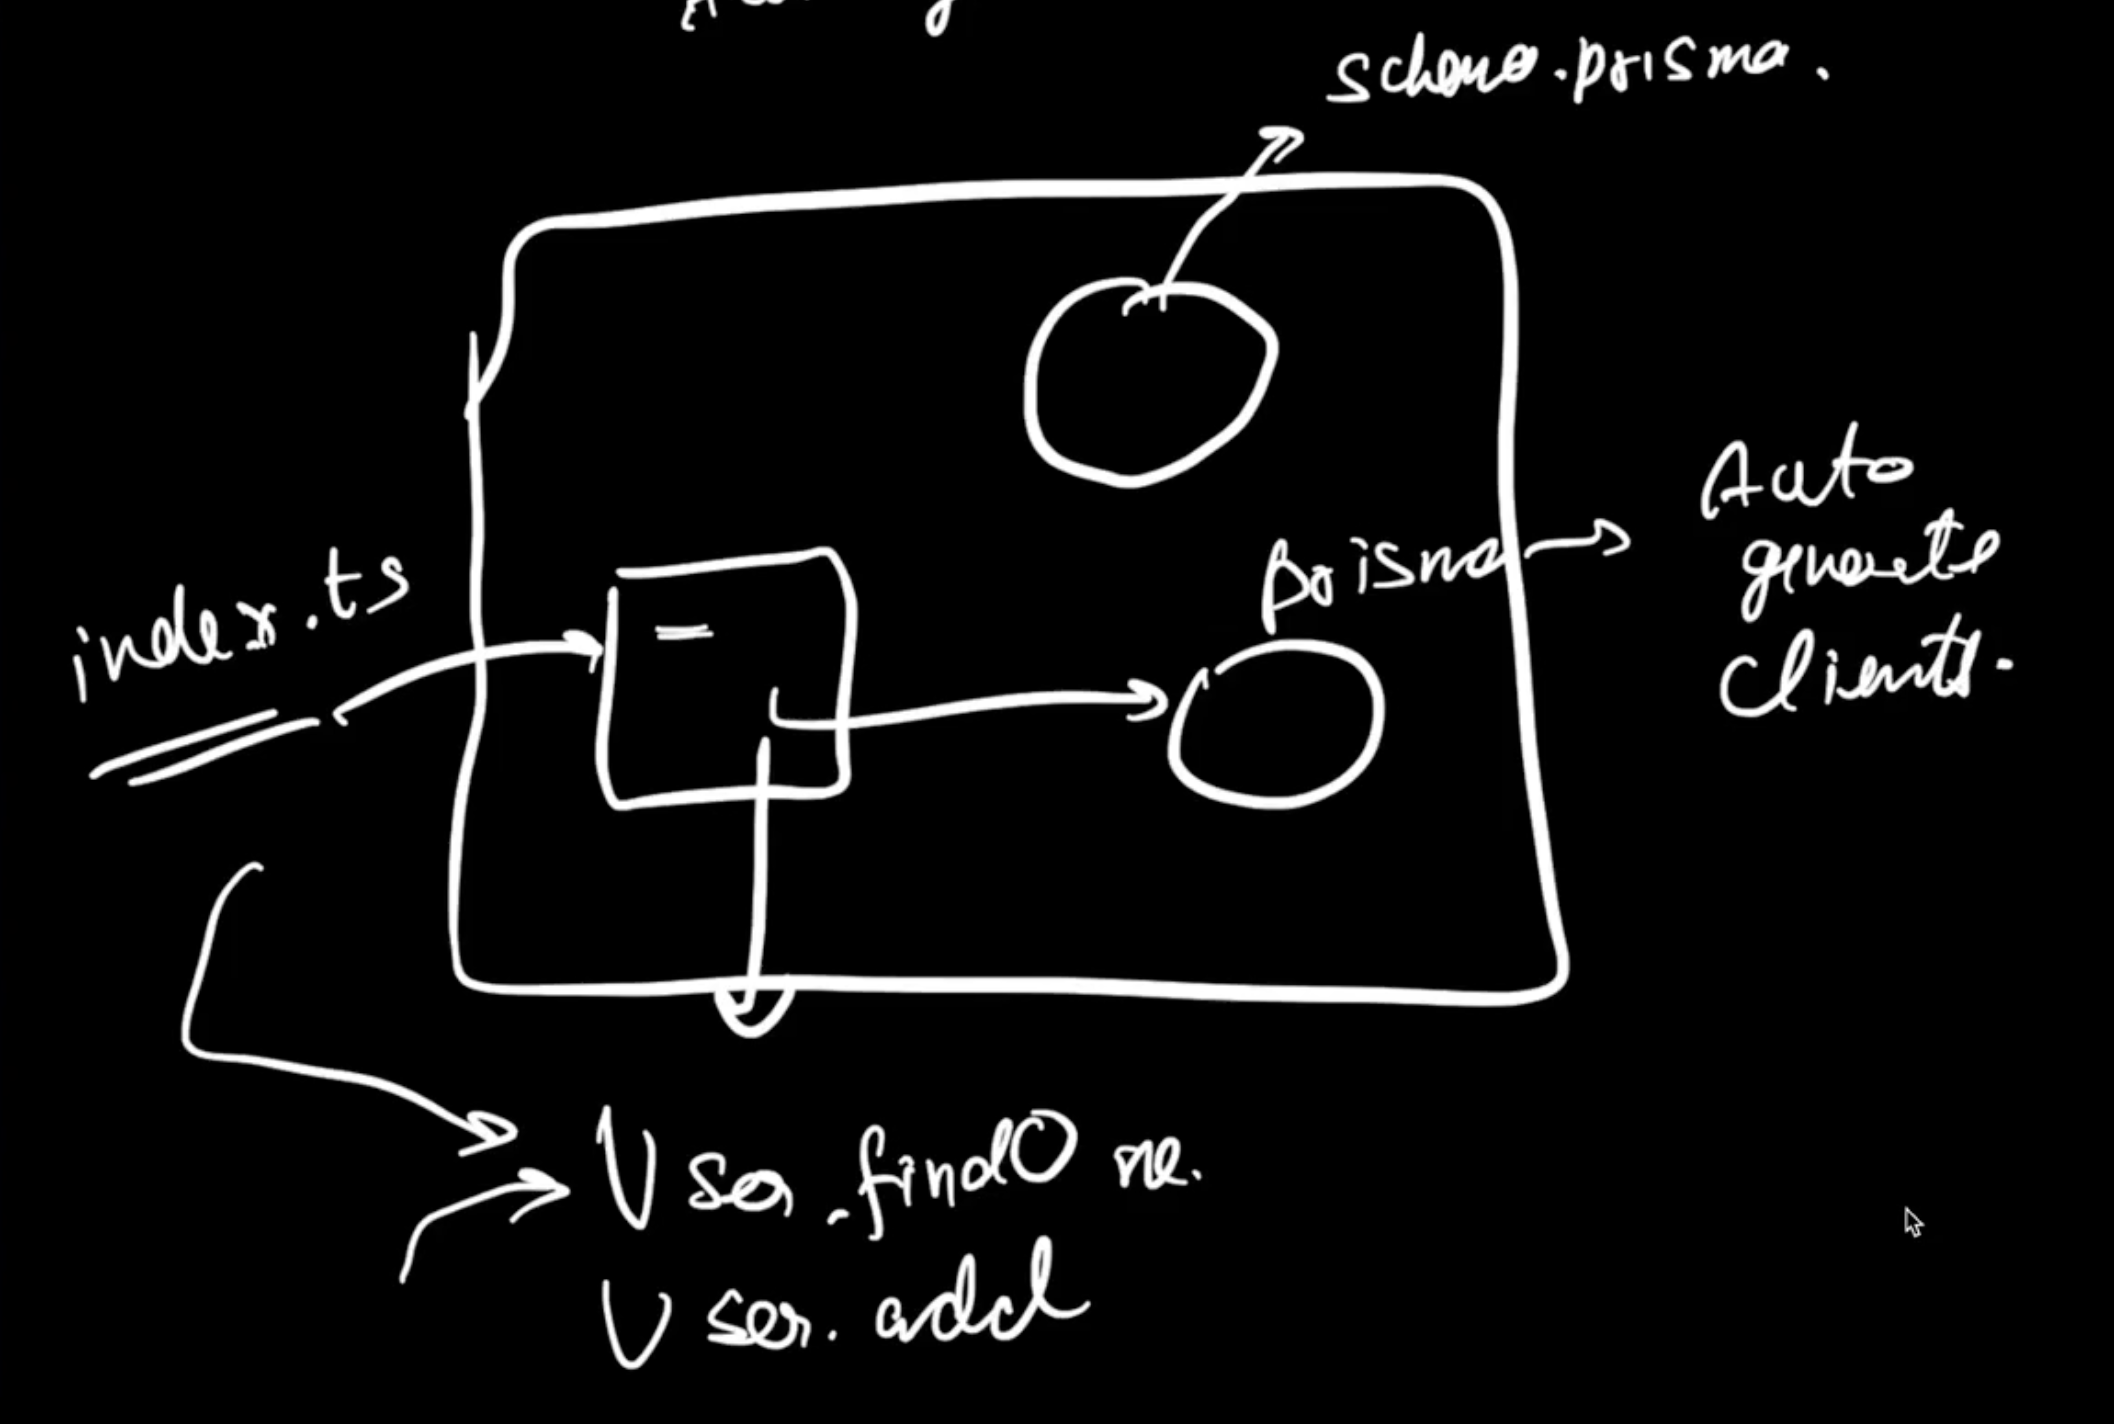 schema.prisma.
index.ts
prisma
Auto
generate
clients.
User.findOne.
User.add